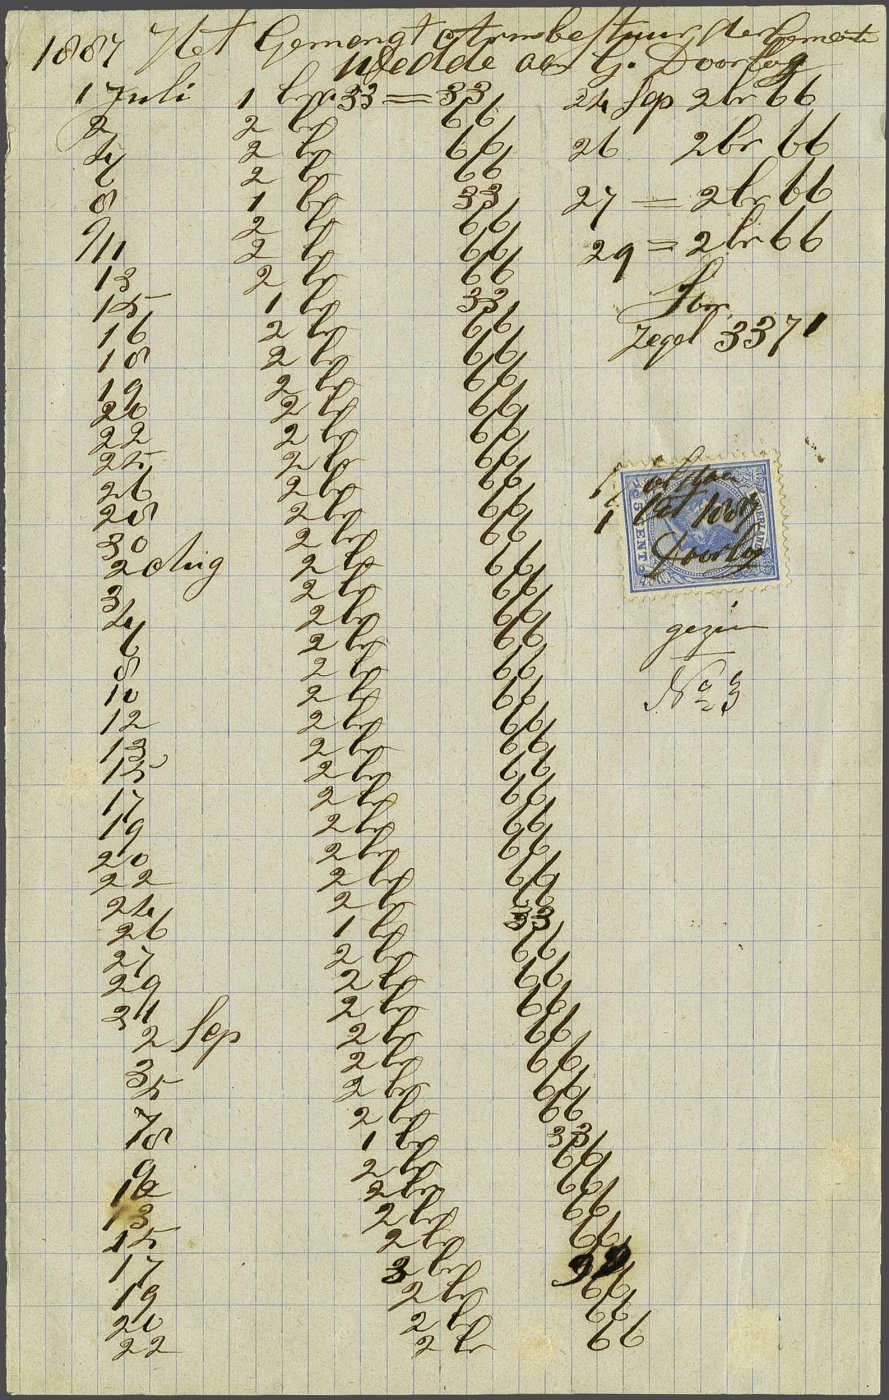 1887 Het Gemengt Armbestuur der Gemeente
Wedde aan G. Doorlag
1 Juli 1 br 33 = 33
2 2 br 66
4 2 br 66
6 2 br 66
8 1 br 33
9 2 br 66
11 2 br 66
13 2 br 66
15 1 br 33
16 2 br 66
18 2 br 66
19 2 br 66
20 2 br 66
22 2 br 66
25 2 br 66
26 2 br 66
28 2 br 66
30 2 br 66
2 Aug 2 br 66
3 2 br 66
4 2 br 66
6 2 br 66
8 2 br 66
10 2 br 66
12 2 br 66
13 2 br 66
15 2 br 66
17 2 br 66
19 2 br 66
20 2 br 66
22 2 br 66
24 2 br 66
26 1 br 33
27 2 br 66
29 2 br 66
31 2 br 66
2 Sep 2 br 66
3 2 br 66
5 2 br 66
7 2 br 66
8 1 br 33
9 2 br 66
12 2 br 66
13 2 br 66
15 2 br 66
17 2 br
19 2 br 66
20 2 br 66
22 2 br 66
24 Sep 2 br 66
26 2 br 66
27 = 2 br 66
29 = 2 br 66
Zegel 33 71
NEDERLAND
5 CENT
voldaan
1 Oct 1887
Doorlag
gezin
No 3